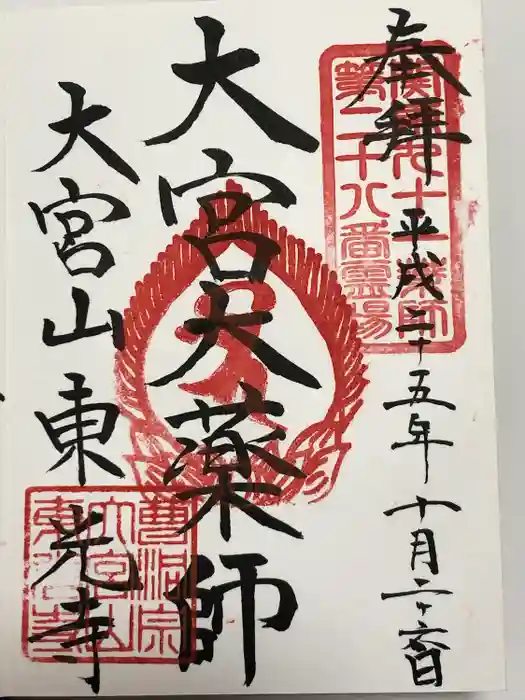 奉拝 平成二十五年 十月二十六日
関東九十一薬師
第二十八番霊場
大宮大薬師
大宮山東光寺
曹洞宗
大宮山
東光寺